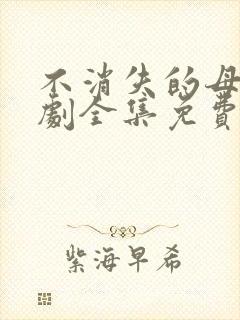 不消失的母
劇全集免費
紫海早希